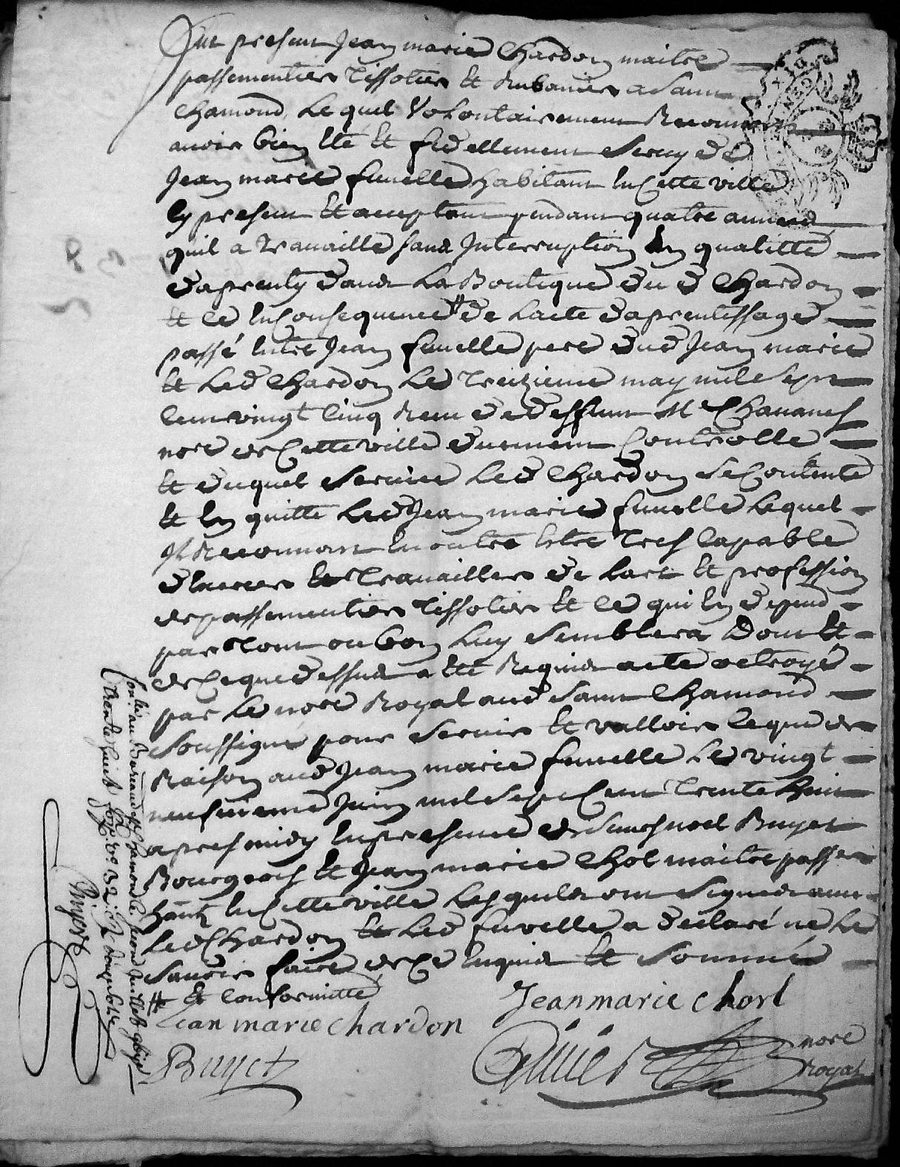 Fut present Jean marie Chardon maitre
passementier Tissotier Et Rubanier a Saint
Chamond Lequel Volontairement Reconnu
avoir bien Eté Et fidellement Servy de
Jean marie fuvelle habitant En Cette ville
Cy present Et acceptant pendant quatre années
quil a Travaille sans Interruption En qualitté
daprenty dans La Boutique du d Chardon
Et ce En Consequence de Lacte daprentissage
passé Entre Jean fuvelle pere dud Jean marie
Et Led Chardon Le Treizieme may mil Sept
Cent vingt Cinq Receu de deffunt Mr Chavanes
nore de Cette ville duement Controllé
Et duquel Service Led Chardon Se Contente
Et En quitte Led Jean marie fuvelle Lequel
Il Reconnait En outre Estre Tres Capable
dexercer Et Travailler de Lart Et profession
de passementier Tissotier Et ce qui En depend
par Tout ou bon Luy Semblera Dont Et
de Ceque dessus a Eté Requis acte octroyé
par Le nore Royal aud Saint Chamond
Soussigné pour Servir Et valloir Ce que de
Raison aud Jean marie fuvelle Le vingt
neufvieme Juin mil Sept Cent Trente huit
apres midy En presence de noel Buyet
Bourgeois Et Jean marie Chol maitre passe
habt En Cette ville Lesquels ont Signé avec
Led Chardon Et Led fuvelle a declaré ne Le
Savoir faire de Ce Enquis Et Sommé
# Et Conformitté
Jean marie Chardon
Jeanmarie Chorl
Buyet
nore
Royal
au Bureau de St Chamond le Juillet
trente huit fo